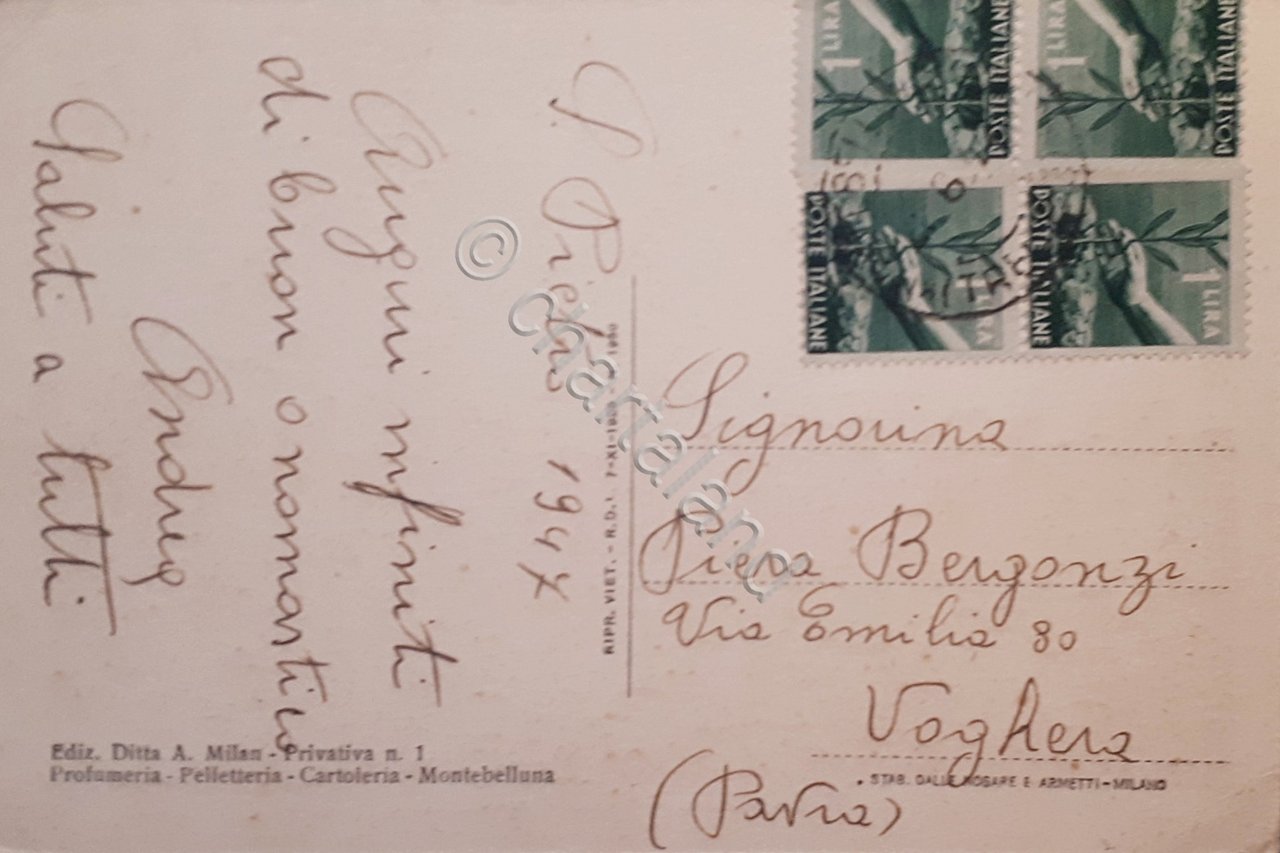 S. Pietro 1947
Auguri infiniti
di buon onomastico
Saluti a tutti
RIPR. VIET. - R.D.L. 7-XI-1925 - N. 1950
Signorina
Piera Bergonzi
Via Emilia 80
Voghera
(Pavia)
Ediz. Ditta A. Milan - Privativa n. 1
Profumeria - Pelletteria - Cartoleria - Montebelluna
STAB. DALLE NOGARE E ARMETTI - MILANO
1 LIRA
POSTE ITALIANE
1 LIRA
POSTE ITALIANE
POSTE ITALIANE
LIRA
POSTE ITALIANE
1 LIRA
© chartaland